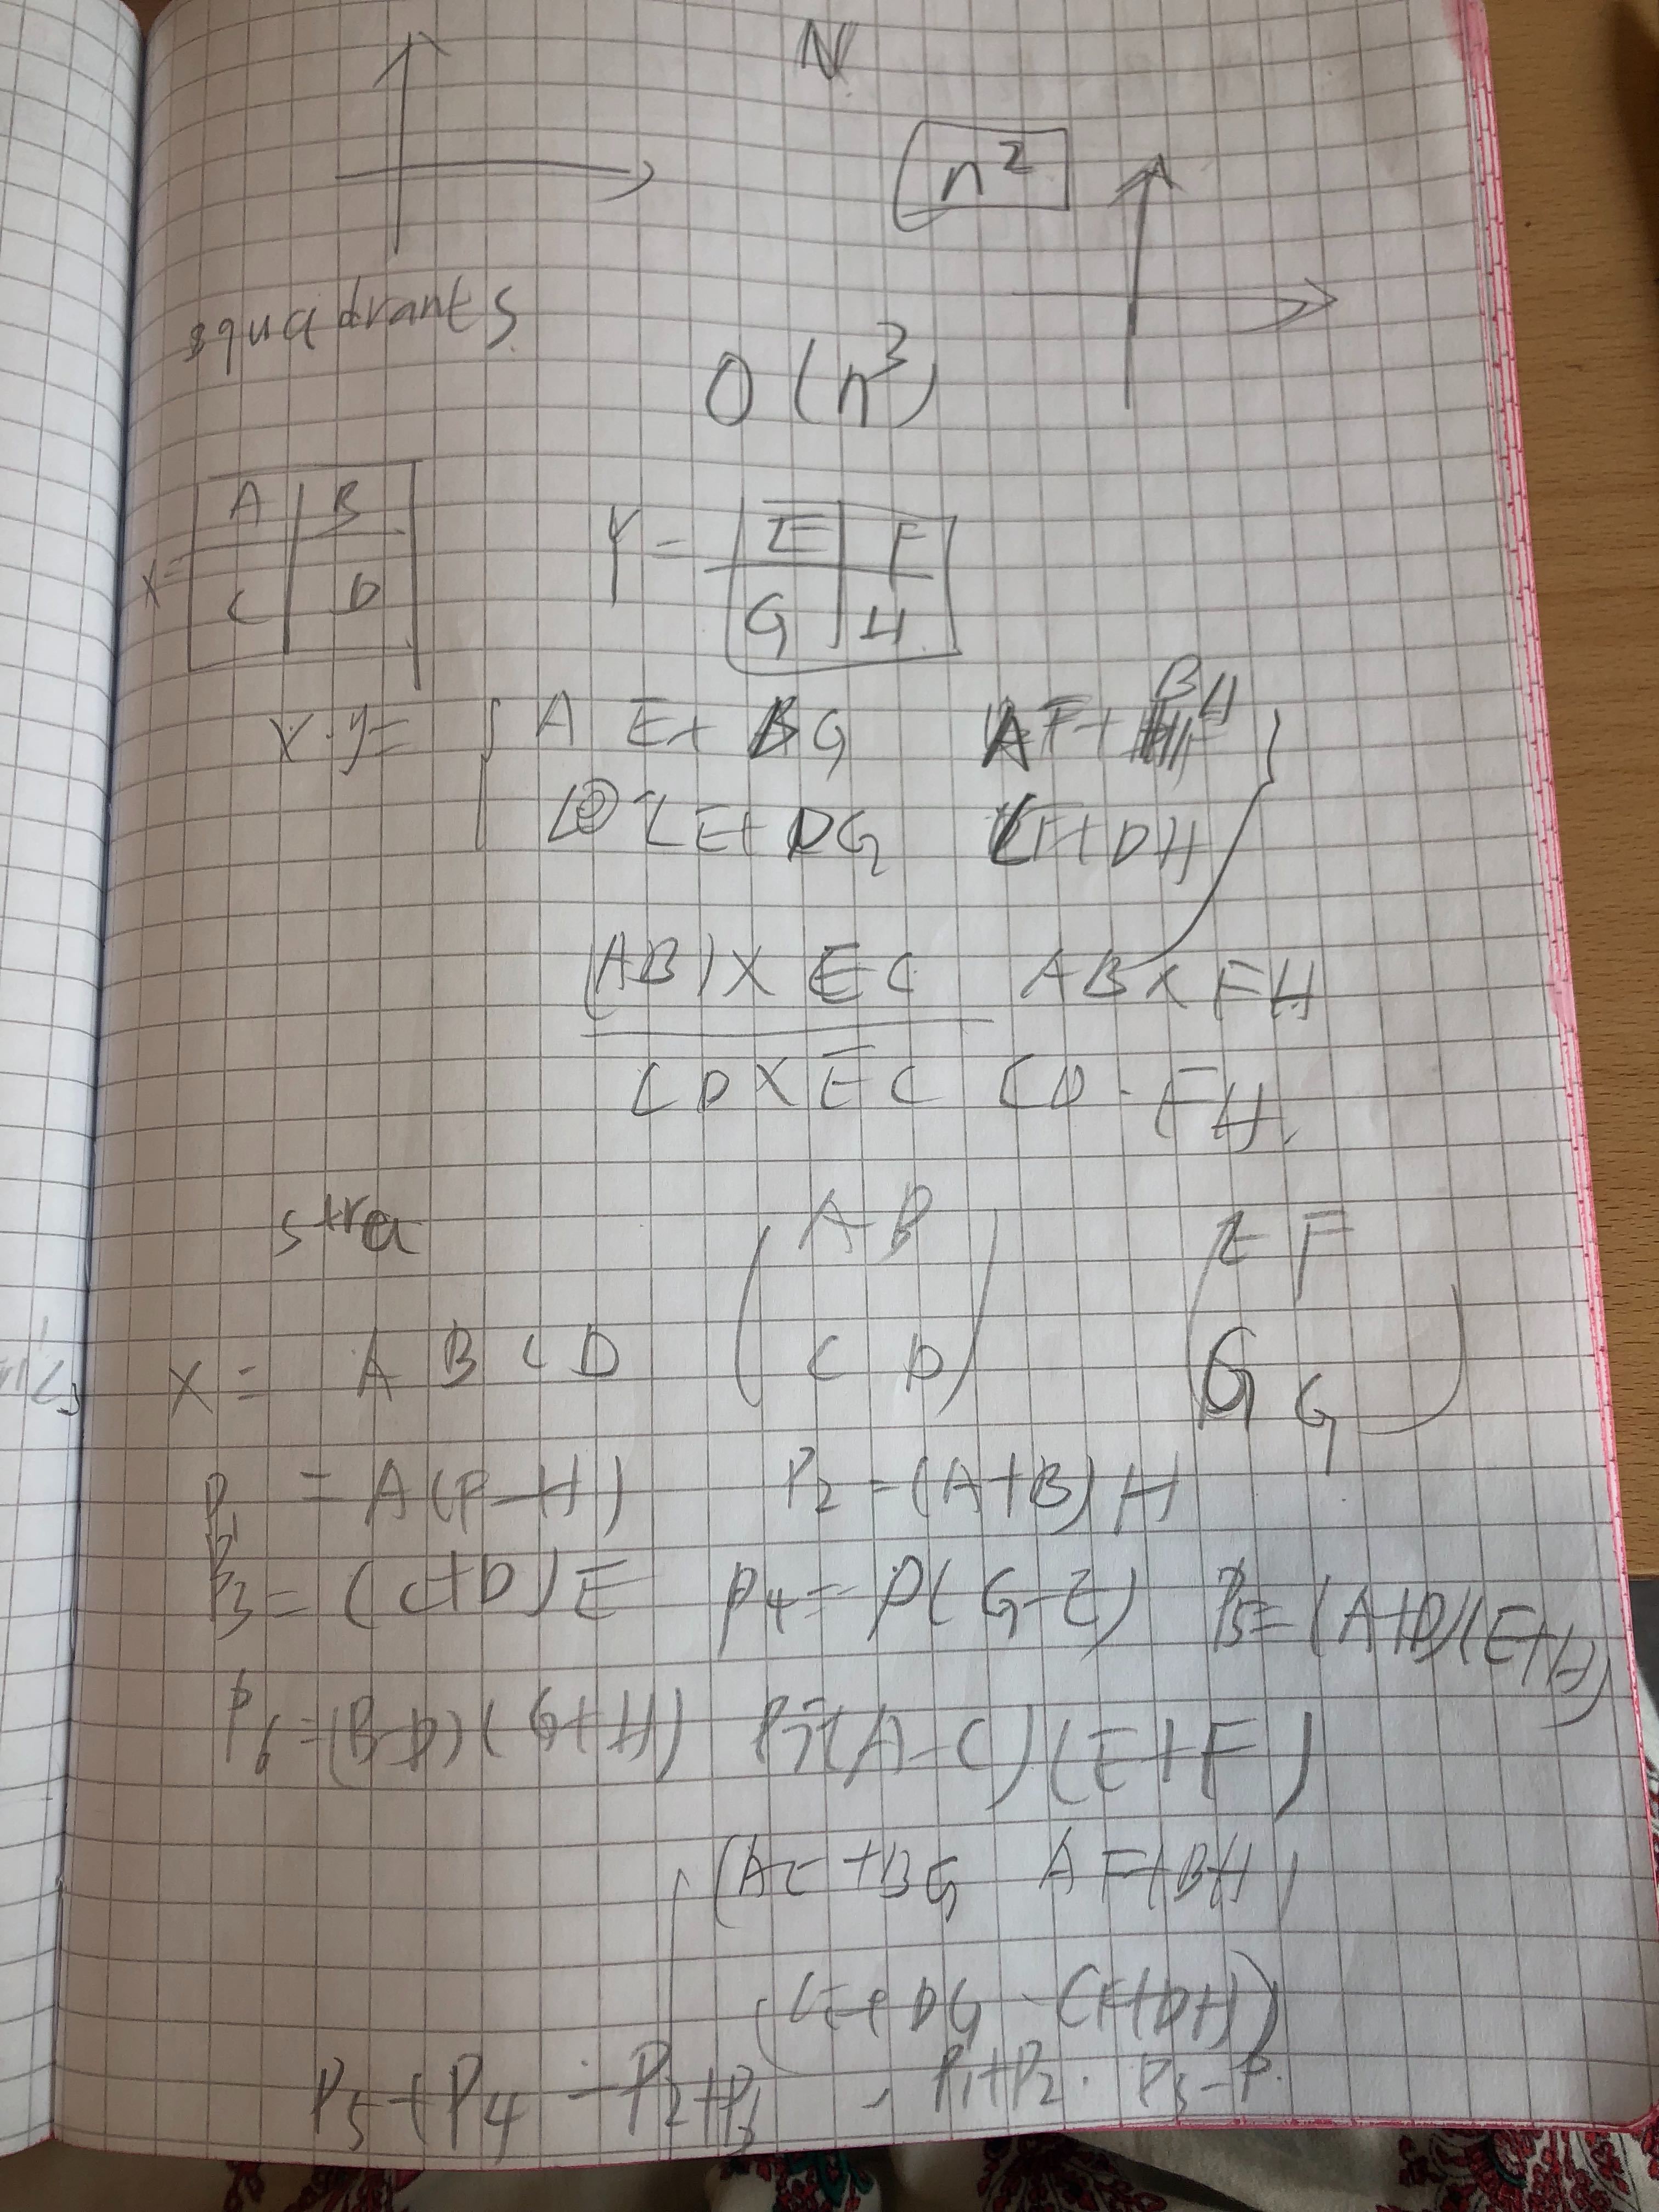 N
n²
squadrants
O(n³)
A B
X=
C D
Y = E F
G H
X·Y= A E+ BG AF+ BH
CE+ DG CF+DH
(AB)X EC AB X FH
CD X EC CD · FH.
stra
A B E F
X = A B C D C D G G
P1 = A(F-H) P2 = (A+B) H
P3 = (C+D) E P4 = D(G-E) P5=(A+D)(E+H)
P6=(B-D)(G+H) P7=(A-C)(E+F)
(AE+BG AF+BH)
(CE+DG CF+DH)
P5+P4 -P2+P6 , P1+P2. P3-P.